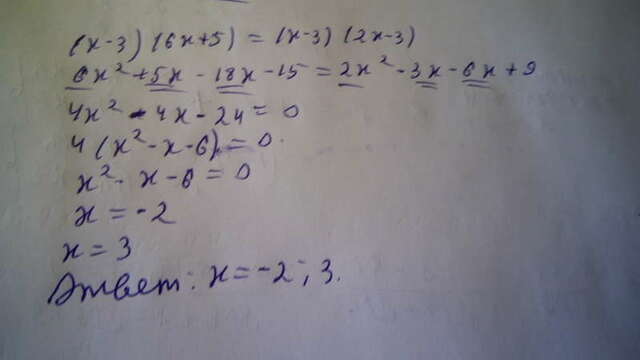 (x-3)(6x+5) = (x-3)(2x-3)
6x² + 5x - 18x - 15 = 2x² - 3x - 6x + 9
4x² - 4x - 24 = 0
4(x² - x - 6) = 0.
x² - x - 6 = 0
x = -2
x = 3
Ответ: x = -2; 3.